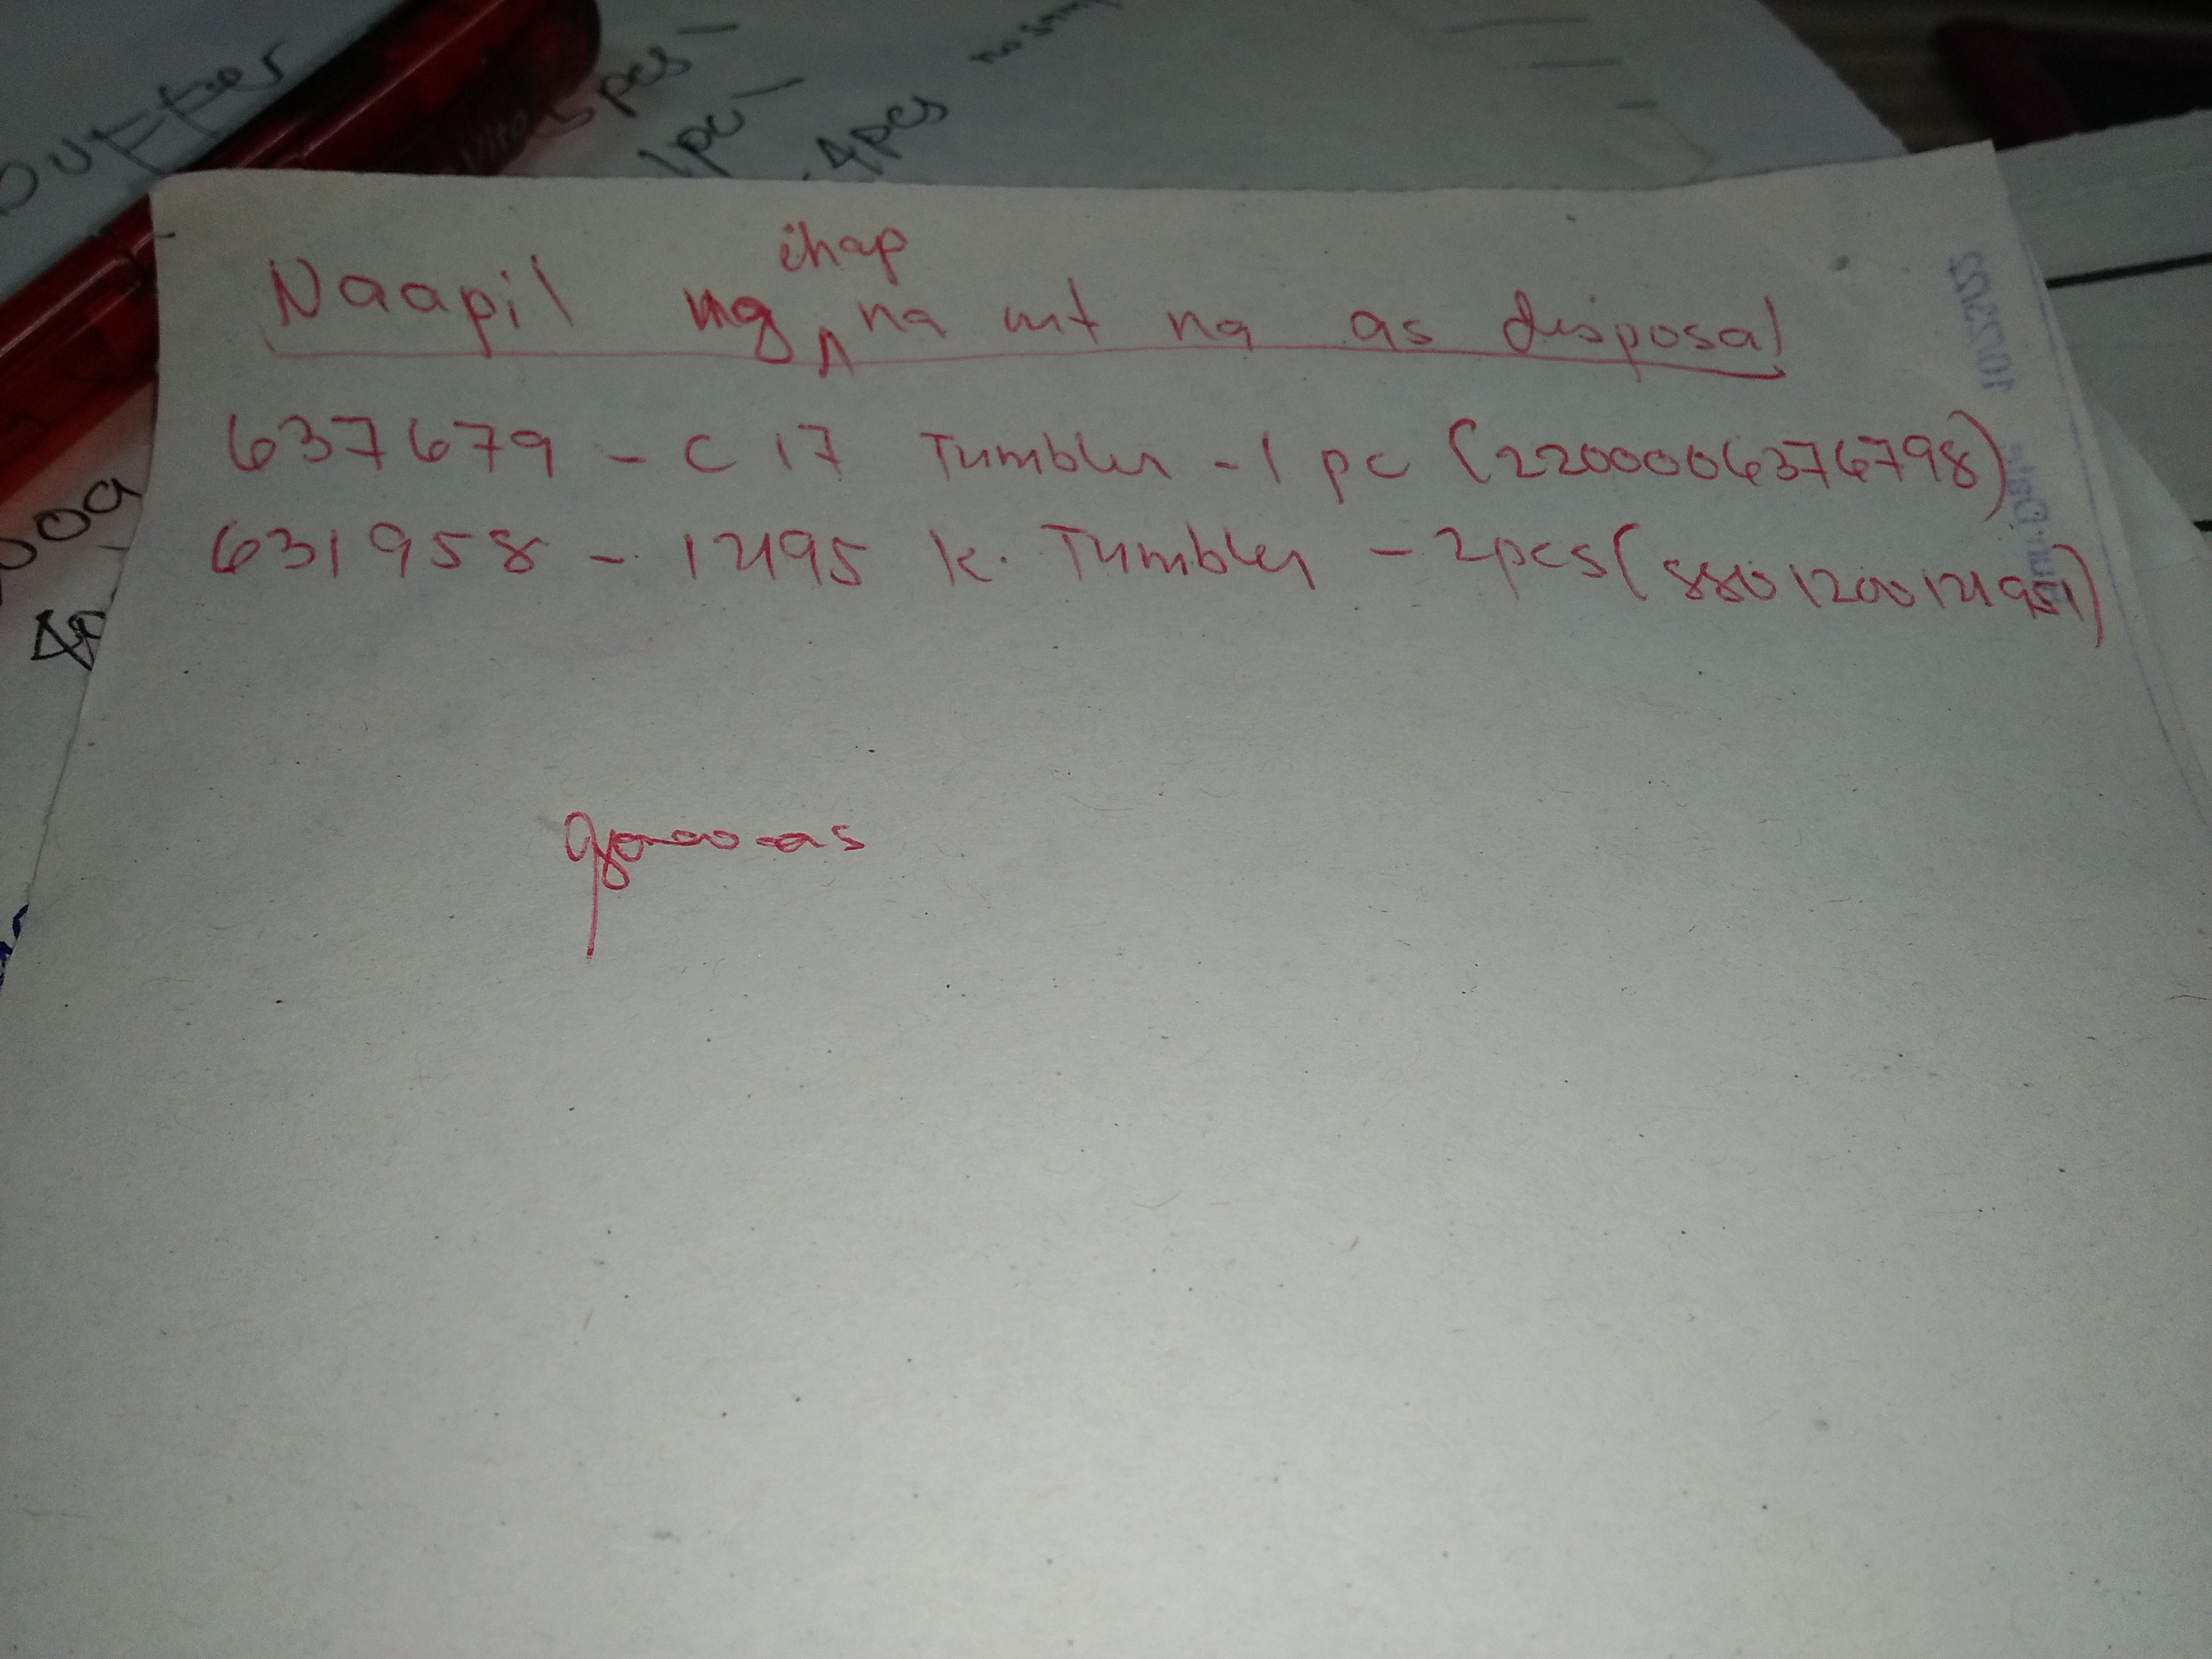 buffer
5 pcs -
1pc -
- 4pcs
Naapil ng ihap na mt na as disposal
637679 - C 17 Tumbler - 1 pc (2200006376798)
631958 - 12195 K. Tumbler - 2pcs (8801200121951)